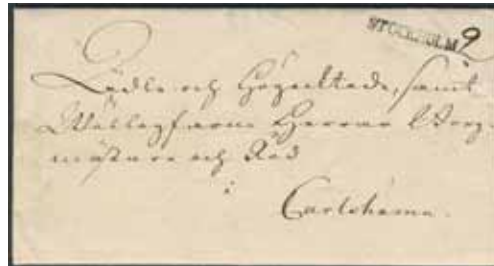 STOCKHOLM 9
Lädle och Högacktade, samt
Wällerfarne Herrar Borg-
mästare och Råd
i
Carlshamn.